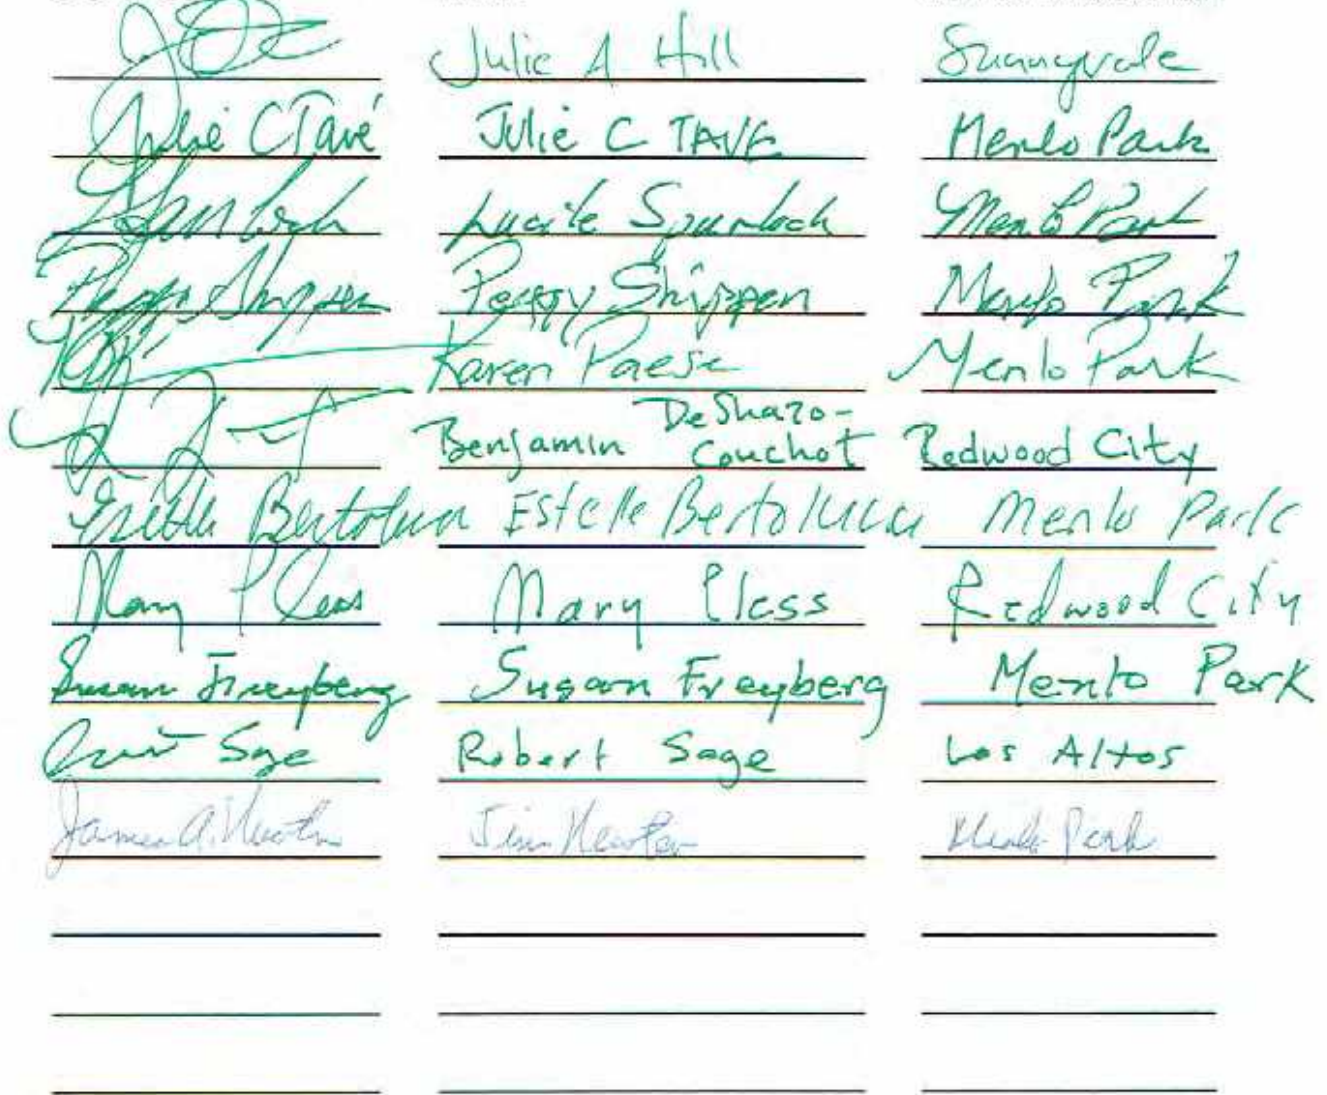 Julie A Hill Sunnyvale
Julie C Tavé Julie C TAVE Menlo Park
Lucile Spurlock Menlo Park
Peggy Shippen Peggy Shippen Menlo Park
Karen Paese Menlo Park
Benjamin DeShazo-Couchot Redwood City
Estelle Bertolucci Estelle Bertolucci Menlo Park
Mary Pless Mary Pless Redwood City
Susan Freyberg Susan Freyberg Menlo Park
Sage Robert Sage Los Altos
James A. Jim Menlo Park